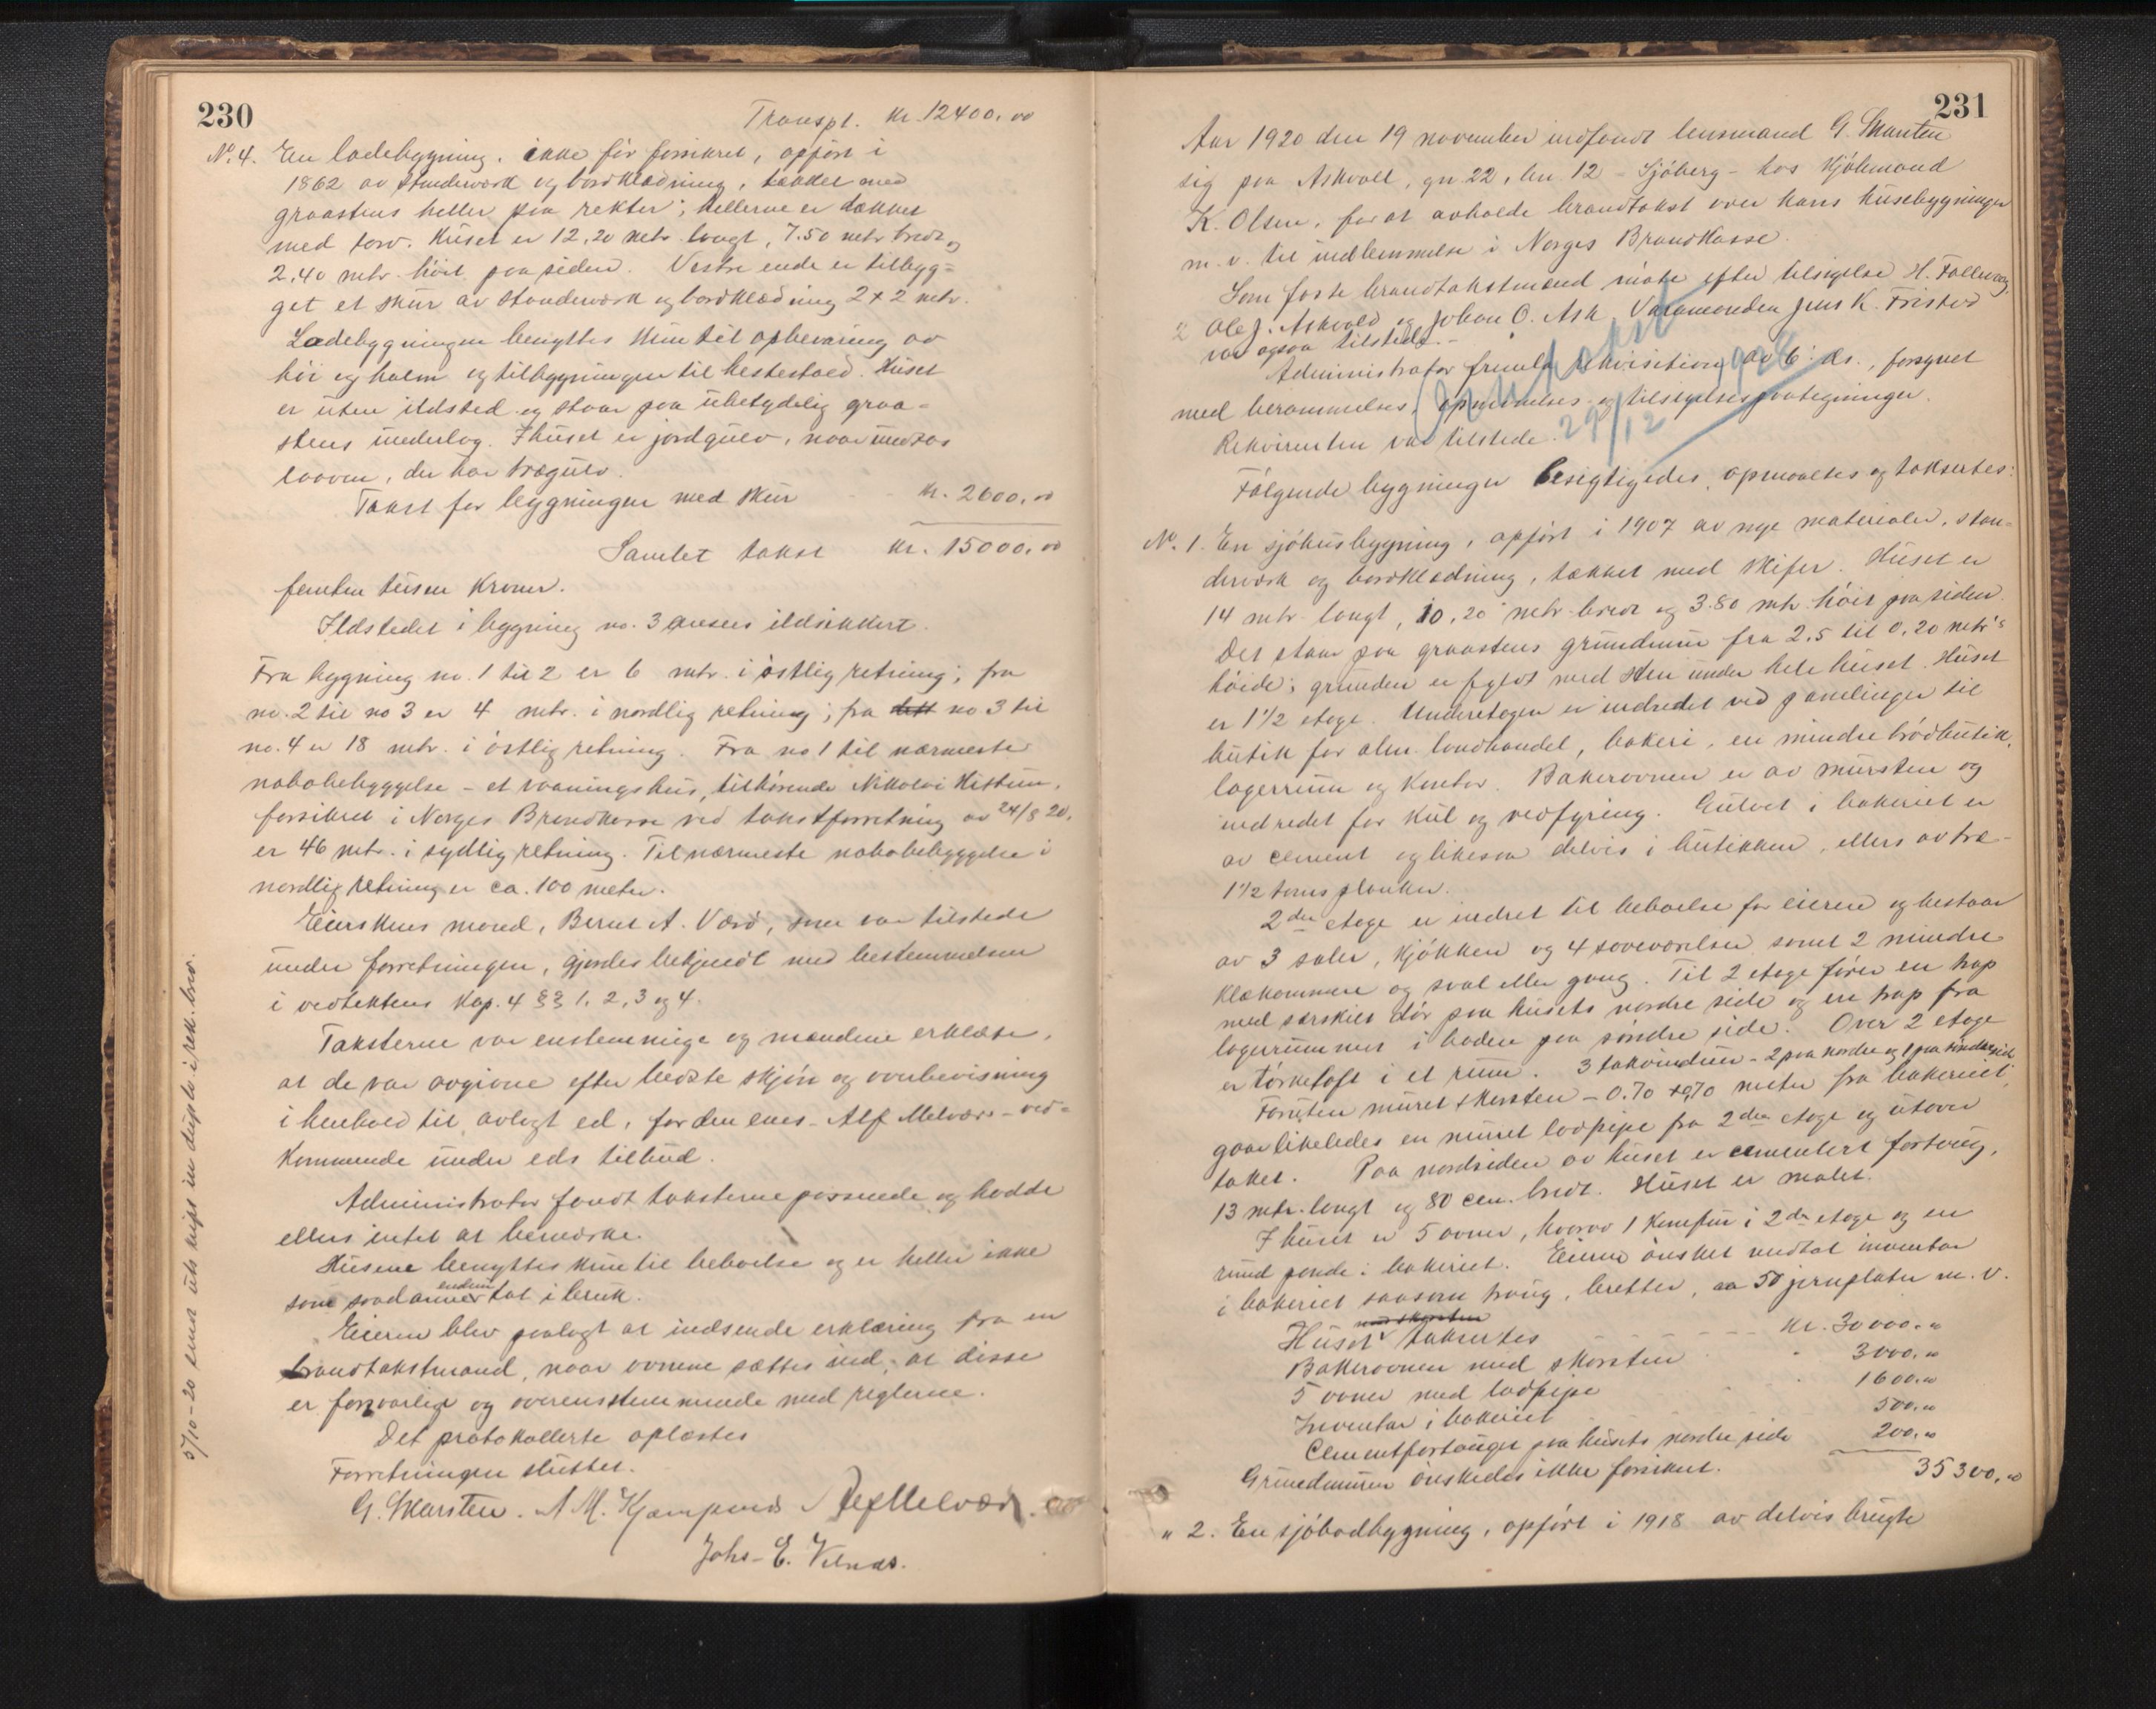 230
Transpt. Kr. 12400,00
No. 4. En ladebygning, ikke før forsikret, opført i
1862 av standerværk og bordklædning, tækket med
graastens heller paa rekter; hellerne er dækket
med torv. Huset er 12,20 metr langt, 7.50 metr bredt og
2.40 metr. høit paa siden. Vestre ende er tilbyg-
get et skur av standerværk og bordklædning 2 x 2 metr.
Ladebygningen benyttes kun til opbevaring av
høi og halm og tilbygningen til hestestald. Huset
er uten ildsted og staar paa ubetydelig graa-
stens underlag. I huset er jordgulv, naar undtas
laaven, der har trægulv.
Takst for bygningen med skur kr. 2600,00
Samlet takst kr. 15000,00
femten tusen kroner.
Ildstedet i bygning no. 3 ansees ildsikkert.
Fra bygning no. 1 til 2 er 6 mtr. i østlig retning; fra
no. 2 til no 3 er 4 mtr. i nordlig retning; fra no 3 til
no. 4 er 18 mtr. i østlig retning. Fra no 1 til nærmeste
nabobebyggelse - et vaaningshus, tilhørende Nikolai Hestum,
forsikret i Norges Brandkasse ved takstforretning av 24/8 20,
er 46 mtr. i sydlig retning. Til nærmeste nabobebyggelse i
nordlig retning er ca. 100 meter.
Eierskens mand, Bernt A. Værø, som var tilstede
under forretningen, gjordes bekjendt med bestemmelsen
i vedtektens Kap. 4 §§ 1, 2, 3 og 4.
Taksterne var enstemmige og mændene erklærte,
at de var avgivne efter bedste skjøn og overbevisning
i henhold til avlagt ed, for den enes - Alf Melvær - ved-
kommende under eds tilbud.
Administrator fandt taksterne passende og hadde
ellers intet at bemærke.
Husene benyttes kun til beboelse og er heller ikke
som saadanne endnu tat i bruk.
Eieren blev paalagt at indsende erklæring fra en
brandtakstmand, naar ovnene sættes ind, at disse
er forsvarlige og overensstemmende med reglerne.
Det protokollerte oplæstes
Forretningen sluttet.
G. Skarsten. A M. Kjempenes Alf Melvær.
Johs. E. Vilnes.
5/10-20 sendt utskrift in duplo i rek. brev.
231
Aar 1920 den 19 november indfandt lensmand G. Skarsten
sig paa Askvoll, gn. 22, bn. 12 - Sjøberg - hos kjøbmand
K. Olsen, for at avholde brandtakst over hans husebygninger
m. v. til indlemmelse i Norges Brandkasse.
Som faste brandtakstmænd møtte efter tilsigelse H. Folleraas,
2 Ole J. Askvold og Johan O. Ask. Varamanden Jens K. Fristad
var ogsaa tilstede.
Administrator fremla rekvisition av 6. ds., forsynet
med berammelses, opnævnelses og tilsigelsespaategninger.
Rekvirenten var tilstede.
29/12
Følgende bygninger besigtigedes, opmaaltes og taksertes:
No. 1. En sjøhusbygning, opført i 1907 av nye materialer, stan-
derverk og bordklædning, tækket med skifer. Huset er
14 mtr. langt, 10,20 metr. bredt og 3.80 mtr høit paa siden.
Det staar paa graastens grundmur fra 2.5 til 0.20 metr's
høide; grunden er fyldt med sten under hele huset. Huset
er 1 1/2 etage. Underetagen er indredet ved panelinger til
butik for alm. landhandel, bakeri, en mindre brødbutik,
lagerrum og kontor. Bakerovnen er av mursten og
indredet for kul og vedfyring. Gulvet i bakeriet er
av cement og likesaa delvis i butikken, ellers av træ -
1 1/2 toms planker.
2den etage er indret til beboelse for eieren og bestaar
av 3 saler, kjøkken og 4 soveværelser samt 2 mindre
klækammere og sval eller gang. Til 2 etage fører en trap
med særskilt dør paa husets nordre side og en trap fra
lagerrummet i boden paa søndre side. Over 2 etage
er tørkeloft i et rum. 3 takvinduer - 2 paa nordre og 1 paa søndre side
Foruten muret skorsten - 0.70 x 0,70 meter fra bakeriet,
gaar likeledes en muret lodpipe fra 2den etage og utover
taket. Paa nordsiden av huset er cementert fortaug,
13 mtr. langt og 80 cm. bredt. Huset er malet.
I huset er 5 ovner, hvorav 1 komfur i 2den etage og en
rund i bakeriet. Eieren ønsket medtat inventar
i bakeriet saasom traug, bretter, 50 jernplater m. v.
med skorsten
Huset taksertes kr. 30000.00
Bakerovnen med skorsten " 3000.00
5 ovner med lodpipe " 1600.00
Inventar i bakeriet 500.00
Cementfortauget paa husets nordre side 200.00
Grundmuren ønskedes ikke forsikret. 35300,00
" 2. En sjøbodbygning, opført i 1918 av delvis brugte